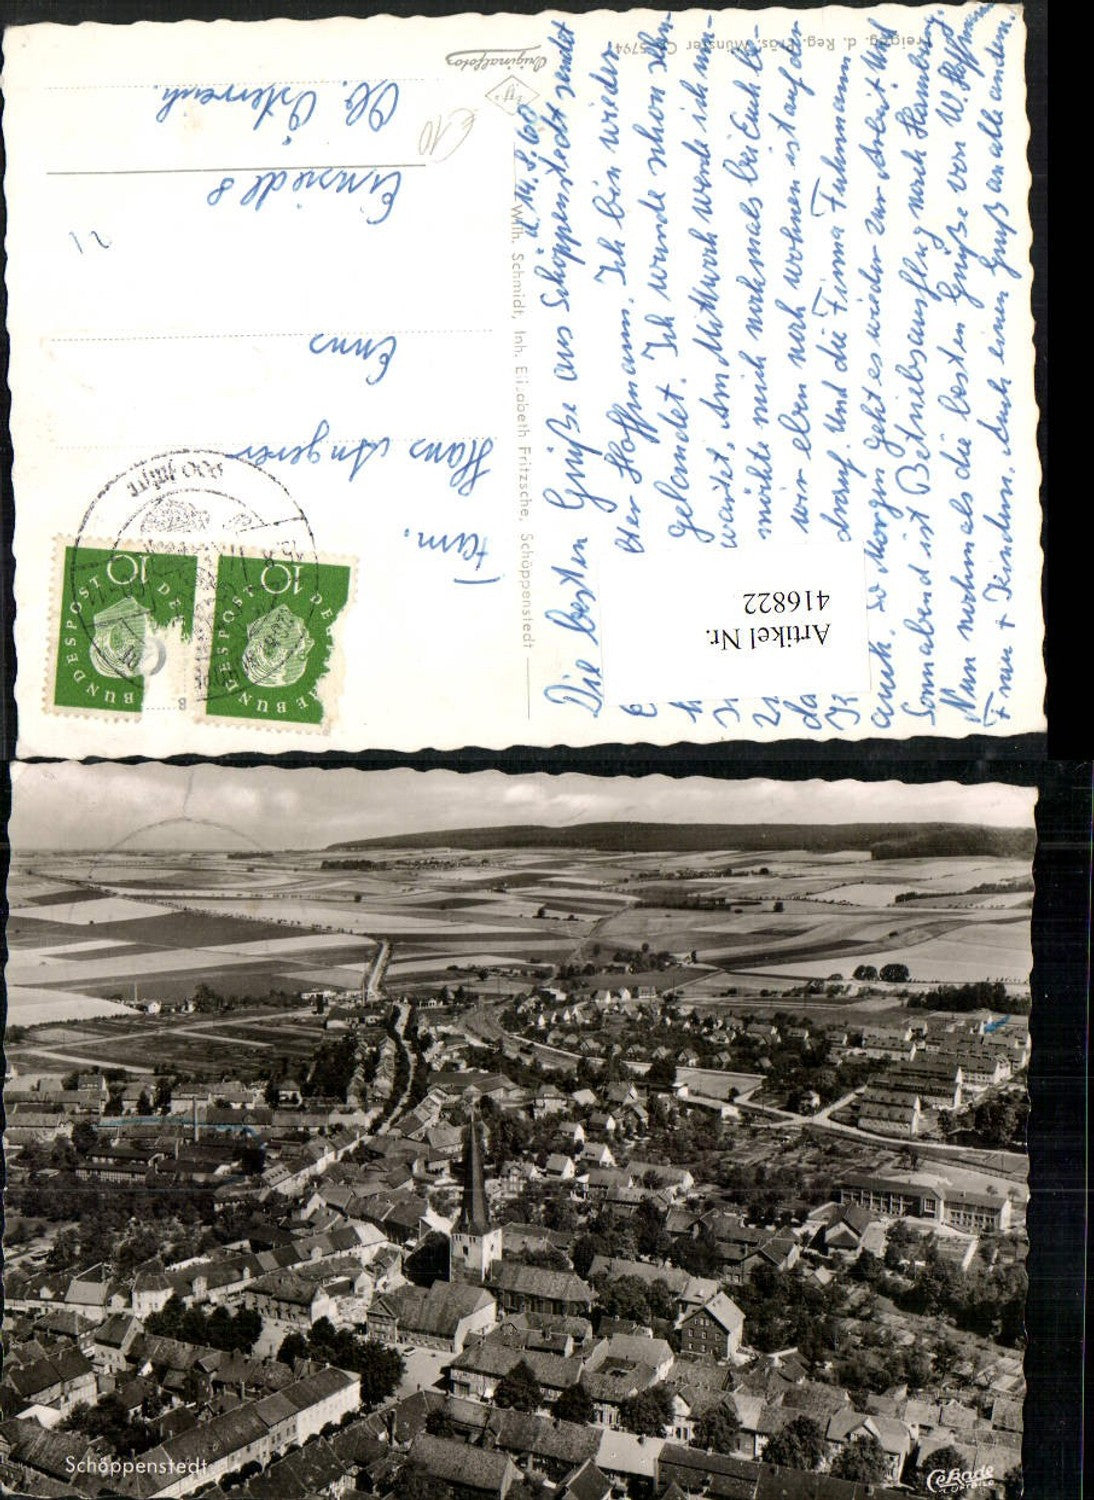 d. 14.8.60
Die besten Grüße aus Schöppenstedt sendet
Euer Hoffmann. Ich bin wieder
gelandet. Ich wurde schon sehn-
Am Mittwoch werde ich
möchte mich nochmals bei Euch be-
wir eben noch wohnen ist auf der
drauf. Und die Firma Fuhrmann
auch. So Morgen geht es wieder zur Arbeit. Und
Sonnabend ist Betriebsausflug nach Hamburg.
Nun nochmals die besten Grüße von W. Hoffmann
Frau + Kindern. Auch einen Gruß an alle andern.
Freigeg. d. Reg. Präs. Münster
Originalfotos
Wilh. Schmidt, Inh. Elisabeth Fritzsche, Schöppenstedt
Fam.
Hans Angerer
Enns
Einsiedl 8
Ob. Österreich.
€10
21
DEUTSCHE BUNDESPOST
10
BUNDESPOST
10
Artikel Nr.
416822
Schöppenstedt
Cekade